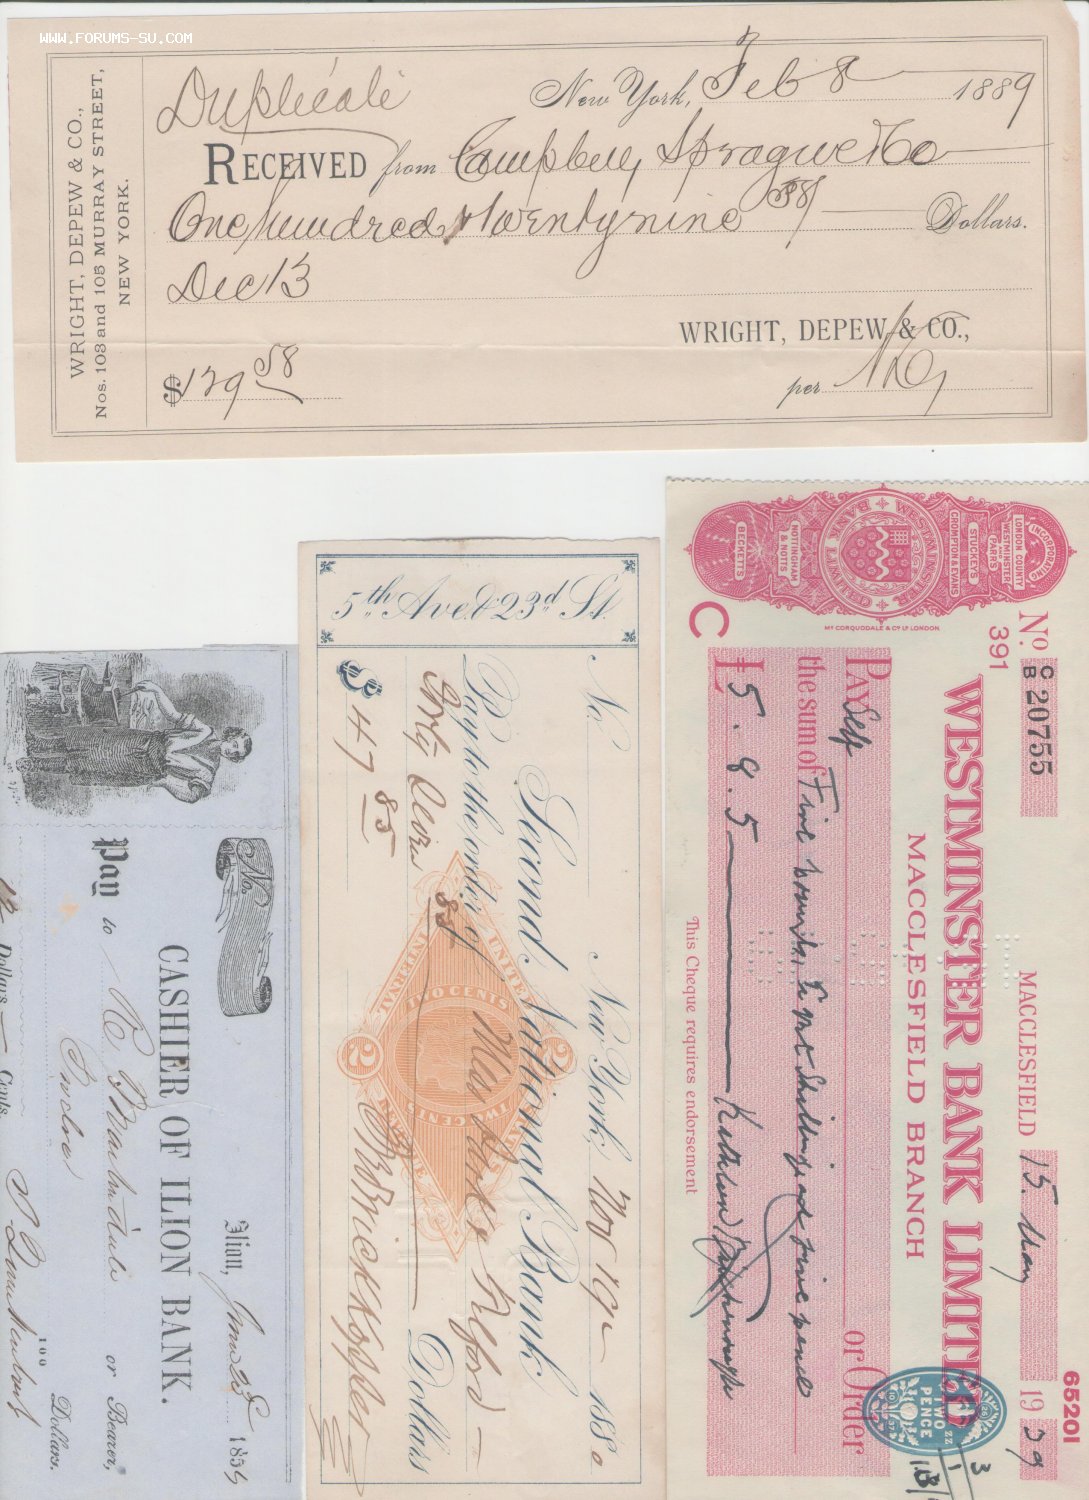 WWW.FORUMS-SU.COM
WRIGHT, DEPEW & CO.,
Nos. 103 and 105 MURRAY STREET,
NEW YORK.
Duplicate
New York, Feb 8 1889
RECEIVED from Campbell, Sprague & Co
One hundred & twenty nine 58/ Dollars.
Dec 13
WRIGHT, DEPEW & CO.,
$129 58
per
Pay to or Bearer,
No.
CASHIER OF ILION BANK.
Ilion, June
Dollars
Cents.
100
Dollars.
5th Ave. & 23d St.
No. New York, Nov 19 1880
Second National Bank
Pay to the order of Mrs
Forty Seven 85 Dollars
$47 85
UNITED STATES
INTERNAL REVENUE
TWO CENTS
2
2
INCORPORATING
LONDON COUNTY
WESTMINSTER
AND
PARR'S
STUCKEYS
CROMPTON & EVANS
WESTMINSTER BANK LIMITED
NOTTINGHAM
& NOTTS
BECKETTS
MC CORQUODALE & CO LTD LONDON
No C/B 20755
391
MACCLESFIELD 15. May 1939
65201
WESTMINSTER BANK LIMITED
MACCLESFIELD BRANCH
TWO PENCE
PAY Self or Order
the sum of Five pounds Eight Shillings and five pence
C
£ 5. 8. 5
This Cheque requires endorsement